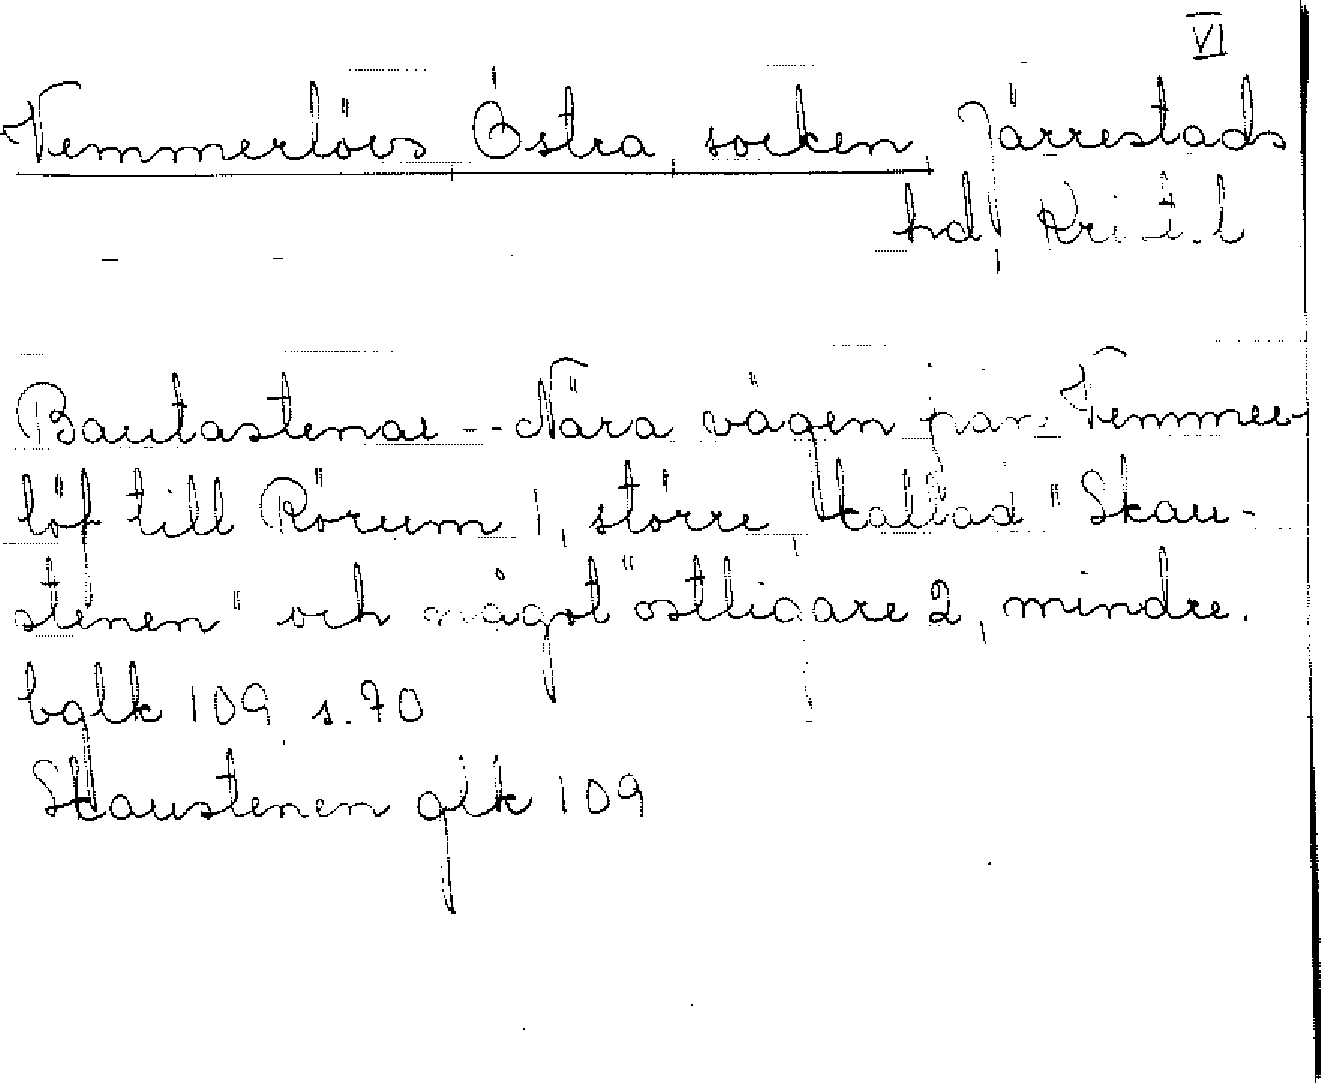 VI
Vemmerlövs Östra socken, Järrestads
hd, Krist. l
Bautastenar -- Nära vägen från Vemmer-
löf till Rörum 1, större kallad "Skau-
stenen" och något östligare 2, mindre.
bglk 109 s. 70
Skaustenen glk 109